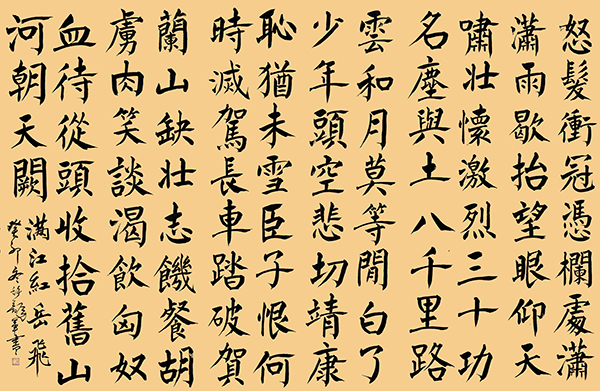 怒髮衝冠憑欄處瀟
瀟雨歇抬望眼仰天
嘯壯懷激烈三十功
名塵與土八千里路
雲和月莫等閒白了
少年頭空悲切靖康
恥猶未雪臣子恨何
時滅駕長車踏破賀
蘭山缺壯志饑餐胡
虜肉笑談渴飲匈奴
血待從頭收拾舊山
河朝天闕
滿江紅岳飛
癸卯冬